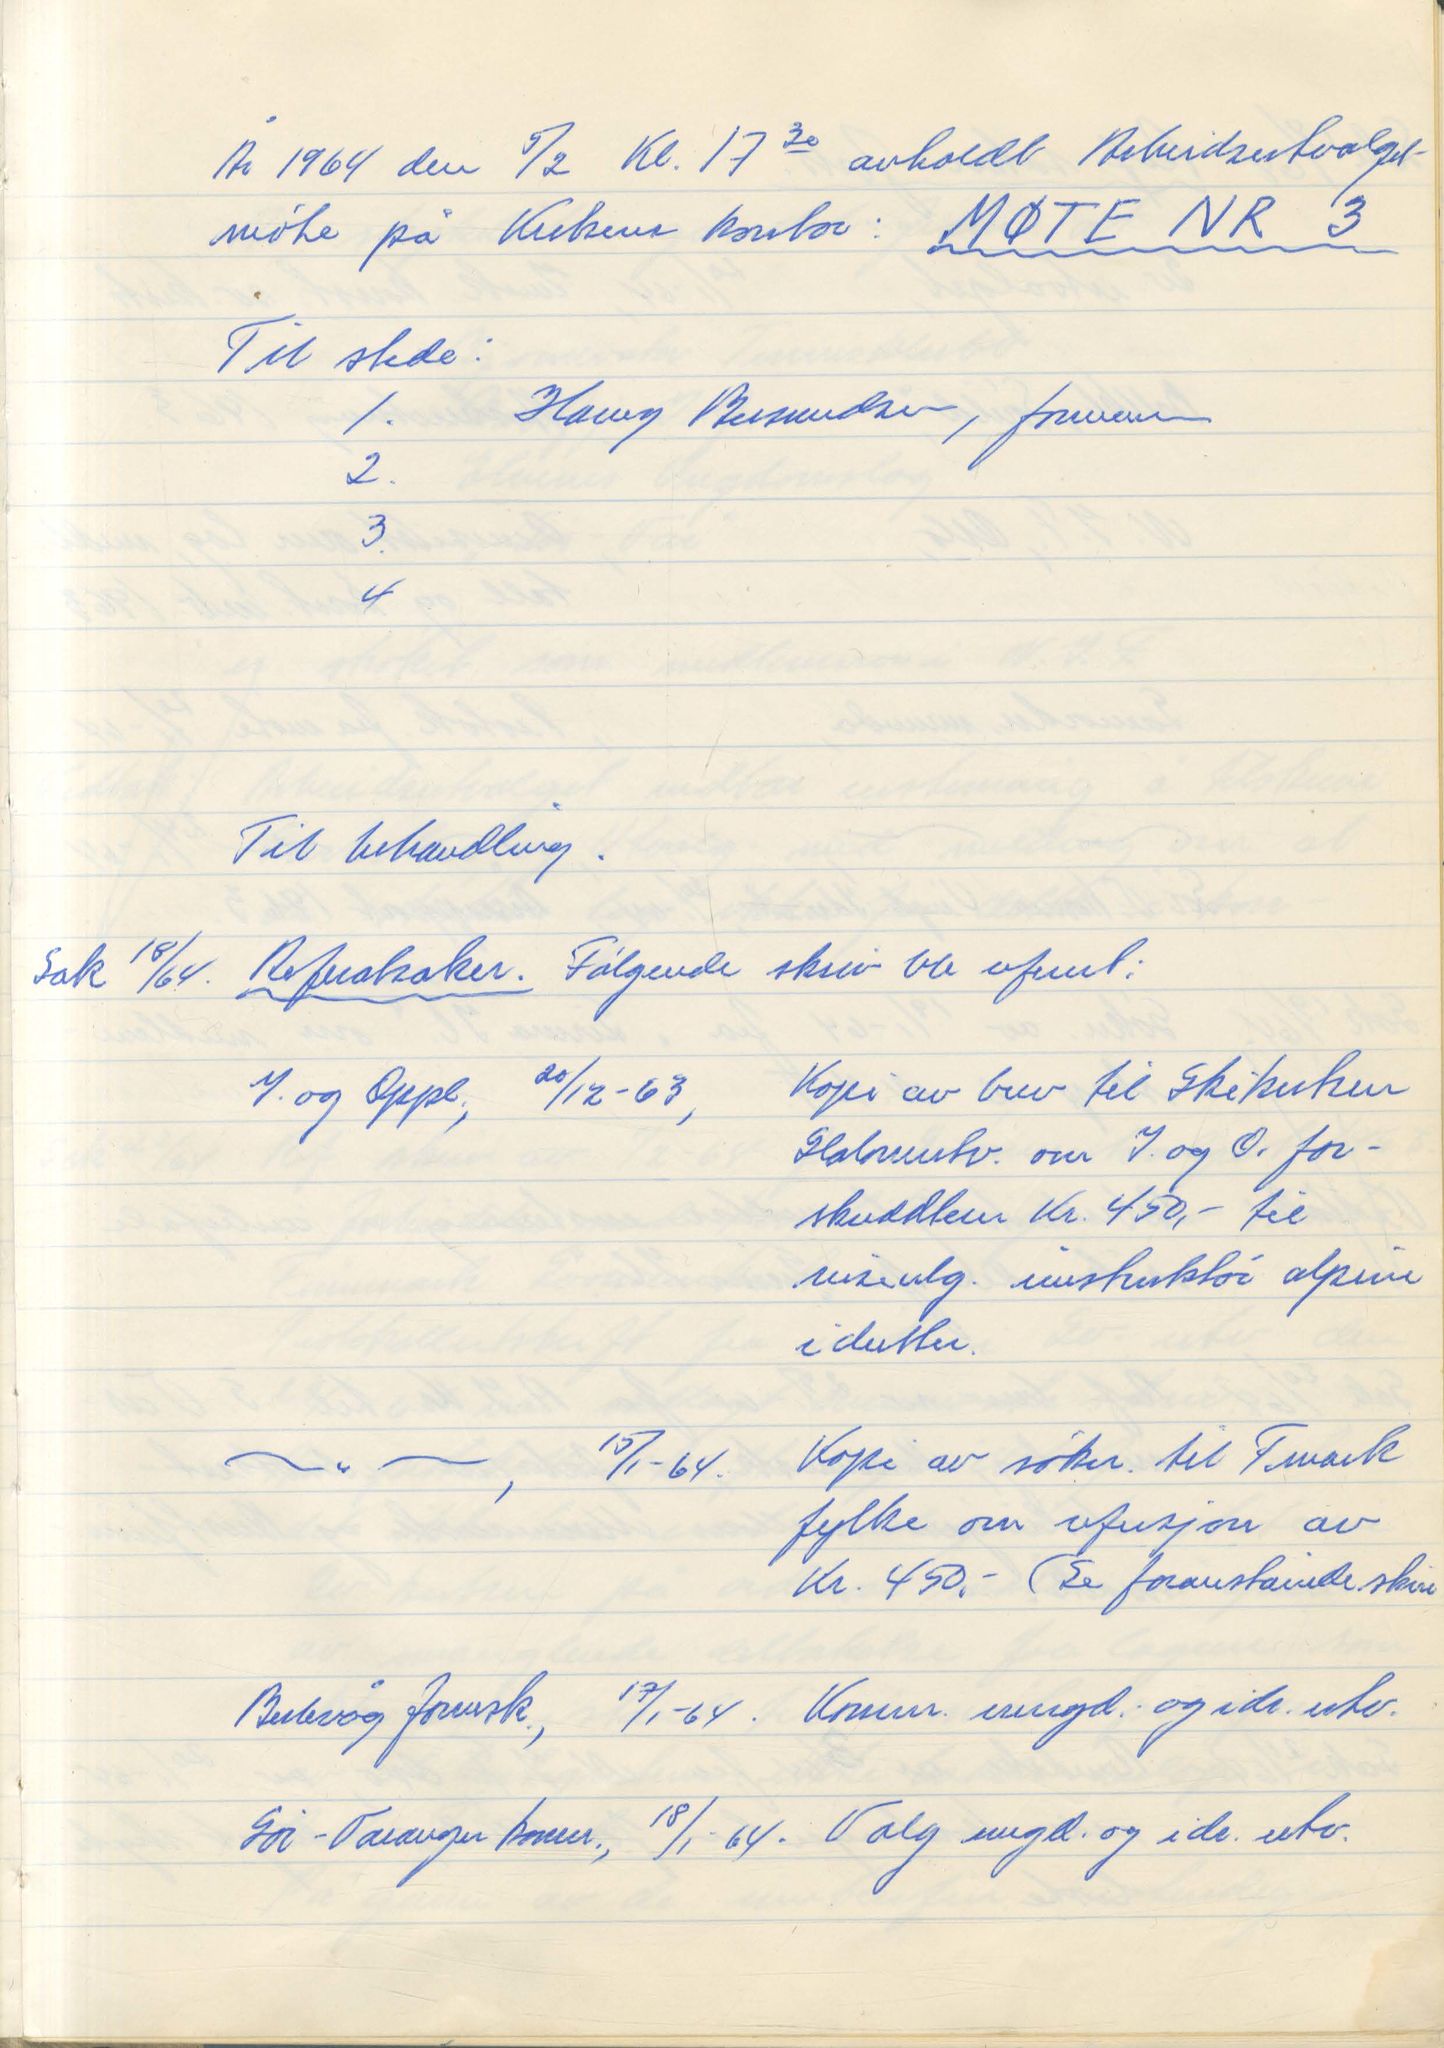 År 1964 den 5/2 Kl. 17 30 avholdt Arbeidsutvalget
møte på Kretsens kontor: MØTE NR 3
Til stede:
1. Harry Bersvendsen, formann
2.
3.
4
Til behandling.
Sak 18/64. Referatsaker. Følgende skriv ble referert:
U. og Oppl., 20/12-63, Kopi av brev til Skikretsen
Slalomutv. om U. og O. for-
skuddterer Kr. 450,- til
reiseutg. instruktör alpine
idretter.
—"—, 15/1-64. Kopi av søkn. til F.mark
fylke om refusjon av
Kr. 450.- (Se foranstående skriv
Berlevåg formsk., 17/1-64. Komm. ungd. og idr. utv.
Sør-Varanger komm., 18/1-64. Valg ungd. og idr. utv.